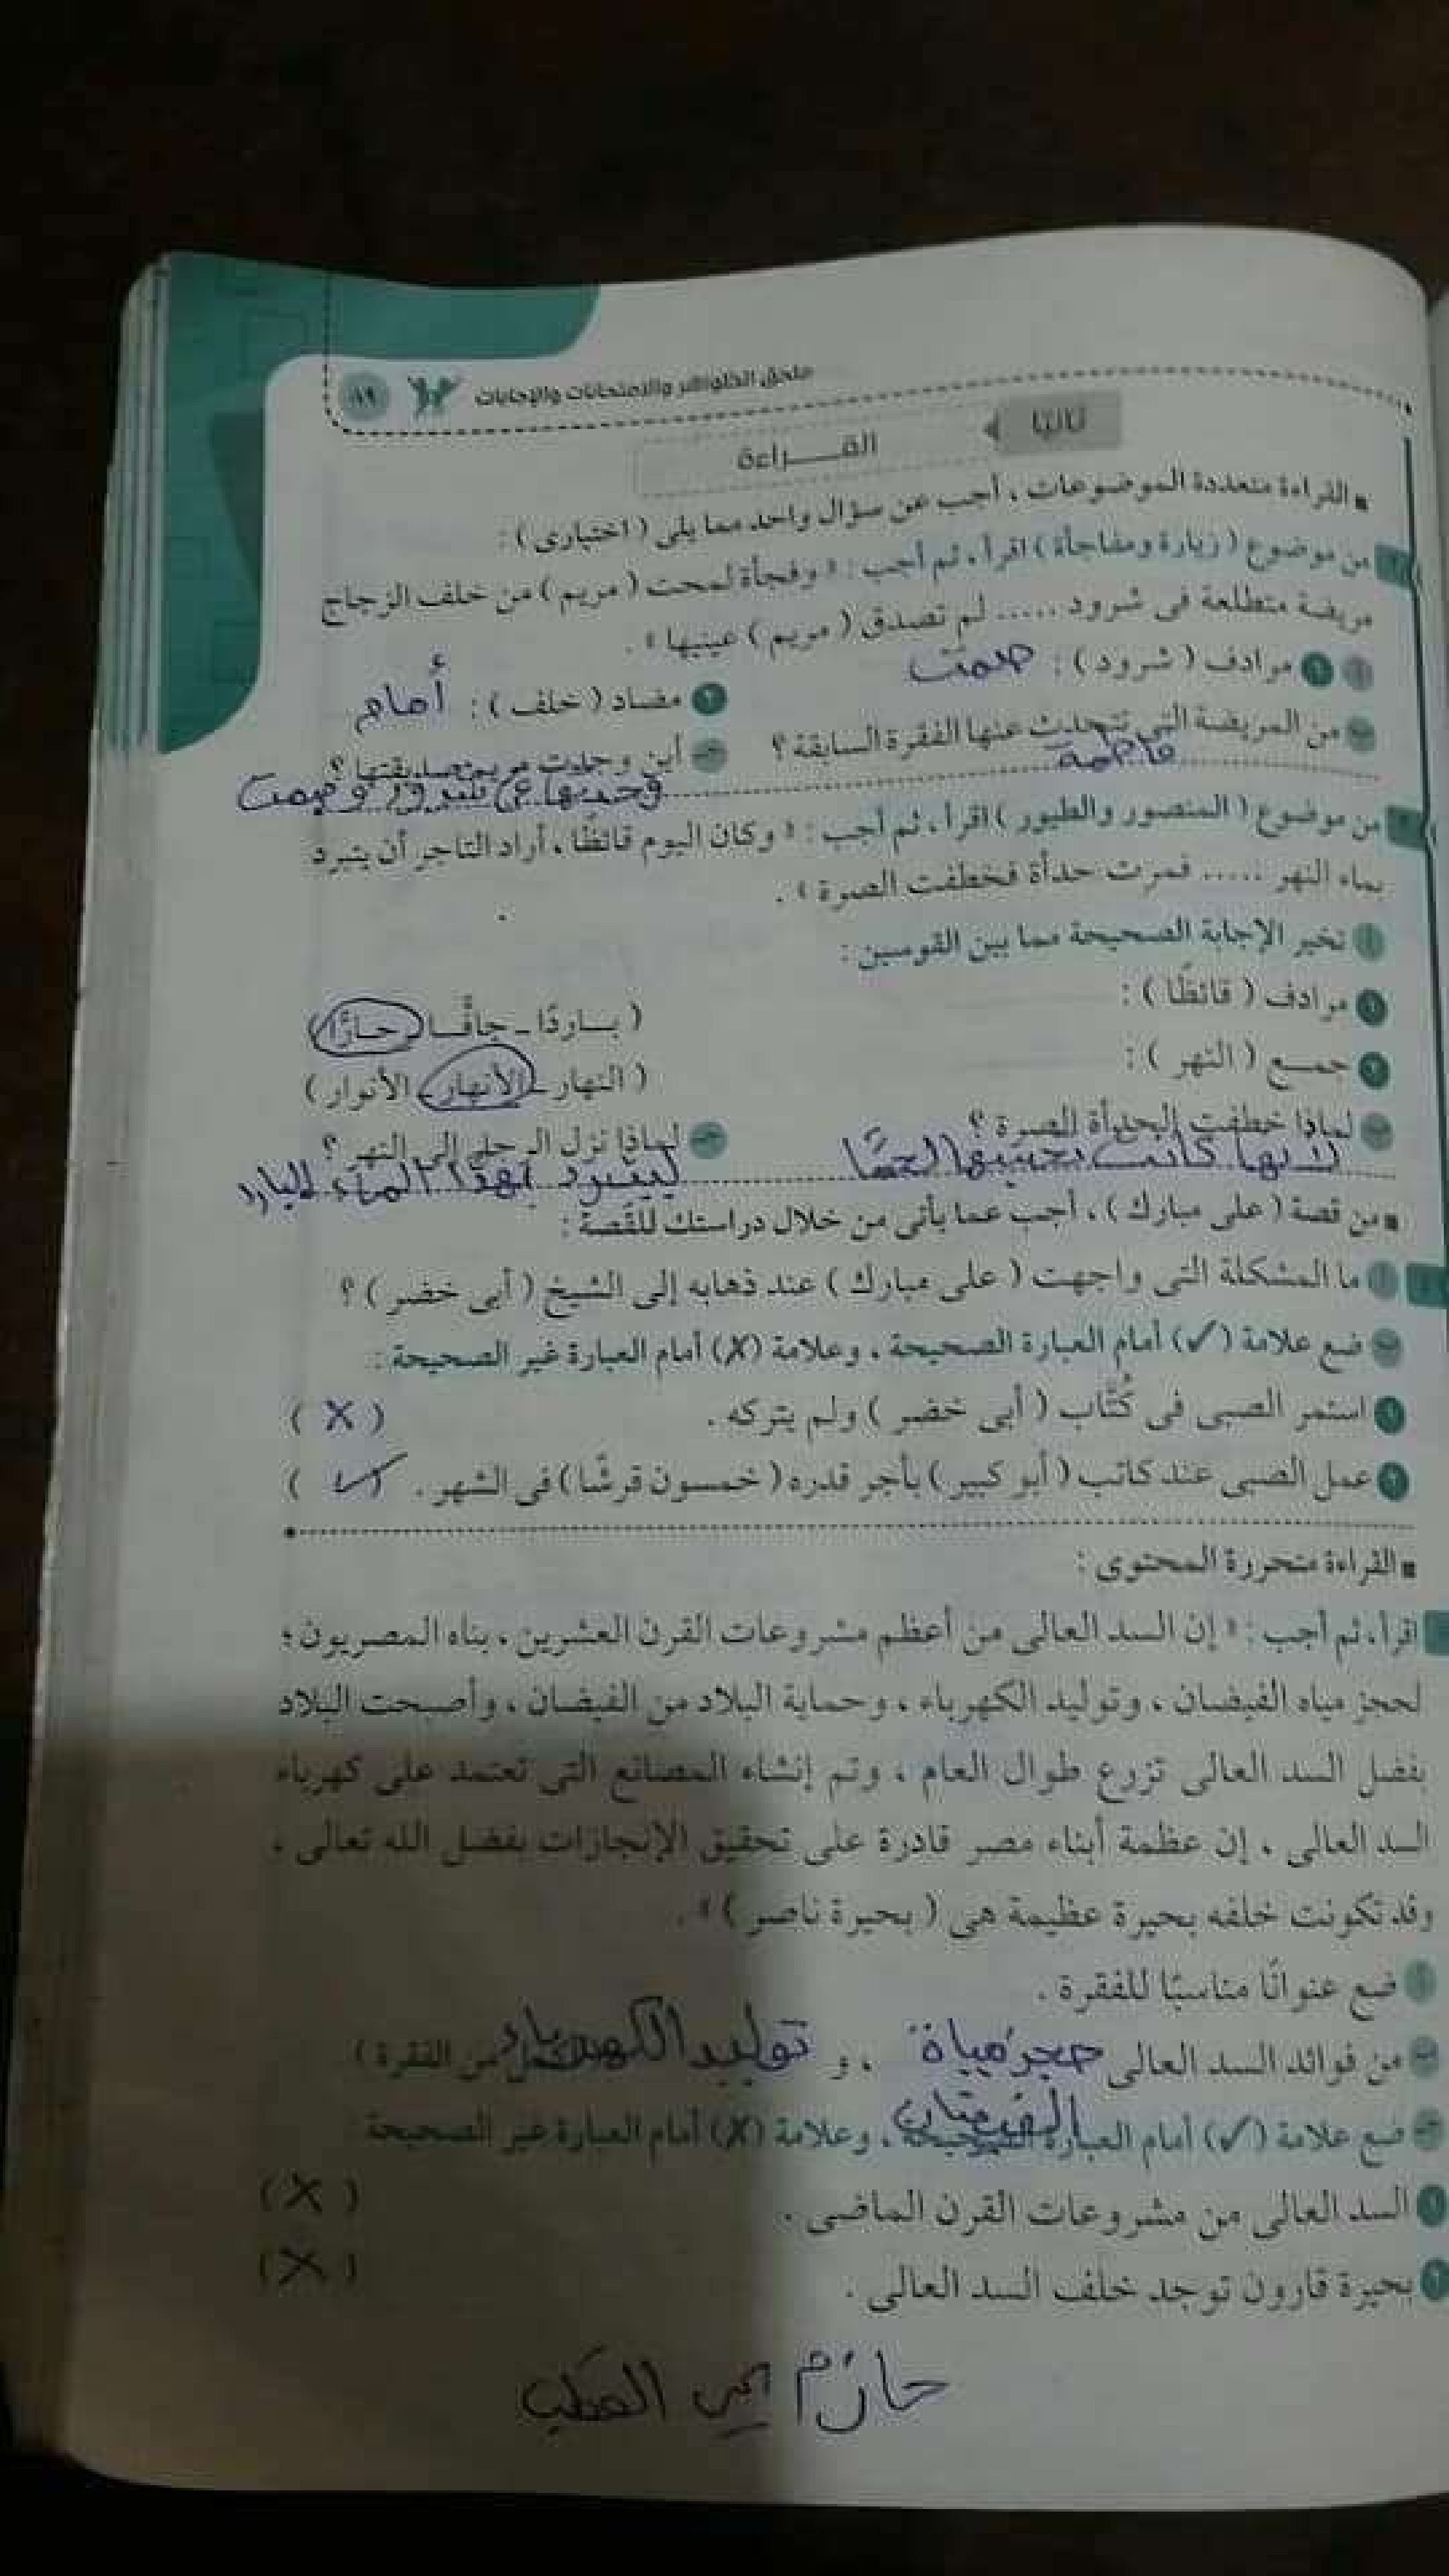 ملحق الظواهر والامتحانات والإجابات ١٩
ثانيًا
القـــراءة
■ القراءة متعددة الموضوعات ، أجب عن سؤال واحد مما يلى ( اختيارى ) :
من موضوع ( زيارة ومفاجأة ) اقرأ ، ثم أجب : « وفجأة لمحت ( مريم ) من خلف الزجاج
مريضة متطلعة فى شرود ..... لم تصدق ( مريم ) عينيها » .
١ مرادف ( شرود ) : صمت
٢ مضاد ( خلف ) : أمام
من المريضة التى تتحدث عنها الفقرة السابقة ؟
أين وجدت مريم صديقتها ؟
فاطمة
وجدتها شرود وصمت
من موضوع ( المنصور والطيور ) اقرأ ، ثم أجب : « وكان اليوم قائظًا ، أراد التاجر أن يتبرد
بماء النهر ..... فمرت حدأة فخطفت الصرة » .
تخير الإجابة الصحيحة مما بين القوسين :
١ مرادف ( قائظًا ) :
( بـاردًا - جافًّـا - حـارًّا )
٢ جمـع ( النهر ) :
( النهار - الأنهار - الأنوار )
لماذا خطفت الحدأة الصرة ؟
لماذا نزل الرجل إلى النهر ؟
لانها كانت تحسبها لحمًا
ليتبرد بهذا الماء البارد
■ من قصة ( على مبارك ) ، أجب عما يأتى من خلال دراستك للقصة :
ما المشكلة التى واجهت ( على مبارك ) عند ذهابه إلى الشيخ ( أبى خضر ) ؟
ضع علامة (✓) أمام العبارة الصحيحة ، وعلامة (✗) أمام العبارة غير الصحيحة :
١ استمر الصبى فى كُتَّاب ( أبى خضر ) ولم يتركه . ( X )
٢ عمل الصبى عند كاتب ( أبو كبير ) بأجر قدره ( خمسون قرشًا ) فى الشهر . ( ✓ )
■ القراءة متحررة المحتوى :
اقرأ ، ثم أجب : « إن السد العالى من أعظم مشروعات القرن العشرين ، بناه المصريون ؛
لحجز مياه الفيضان ، وتوليد الكهرباء ، وحماية البلاد من الفيضان ، وأصبحت البلاد
بفضل السد العالى تزرع طوال العام ، وتم إنشاء المصانع التى تعتمد على كهرباء
السد العالى ، إن عظمة أبناء مصر قادرة على تحقيق الإنجازات بفضل الله تعالى ،
وقد تكونت خلفه بحيرة عظيمة هى ( بحيرة ناصر ) » .
ضع عنوانًا مناسبًا للفقرة .
من فوائد السد العالى حجز مياة ، و توليد الكهرباء من الفقرة )
الفيضان
ضع علامة (✓) أمام العبارة الصحيحة ، وعلامة (✗) أمام العبارة غير الصحيحة
١ السد العالى من مشروعات القرن الماضى . ( X )
٢ بحيرة قارون توجد خلف السد العالى . ( X )
حازم